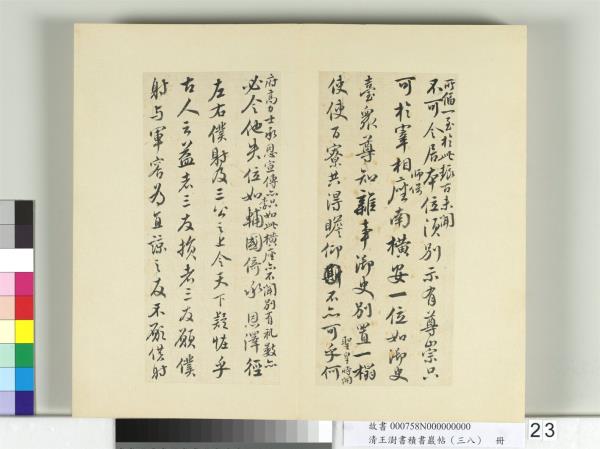 所偏一至於此振古未聞
不可令居本位須別示有尊崇只
可於宰相師保座南橫安一位如御史
臺眾尊知雜事御史別置一榻
使使百寮共得瞻仰不亦可乎何
聖皇時開
府高力士承恩宣傳亦只如此橫座亦不聞別有礼數亦
必令他失位如李輔國倚承恩澤徑
左右僕射及三公之上令天下疑怪乎
古人云益者三友損者三友願僕
射与軍容為直諒之友不願僕射
故書 000758N000000000
清王澍書積書巖帖（三八） 冊
23